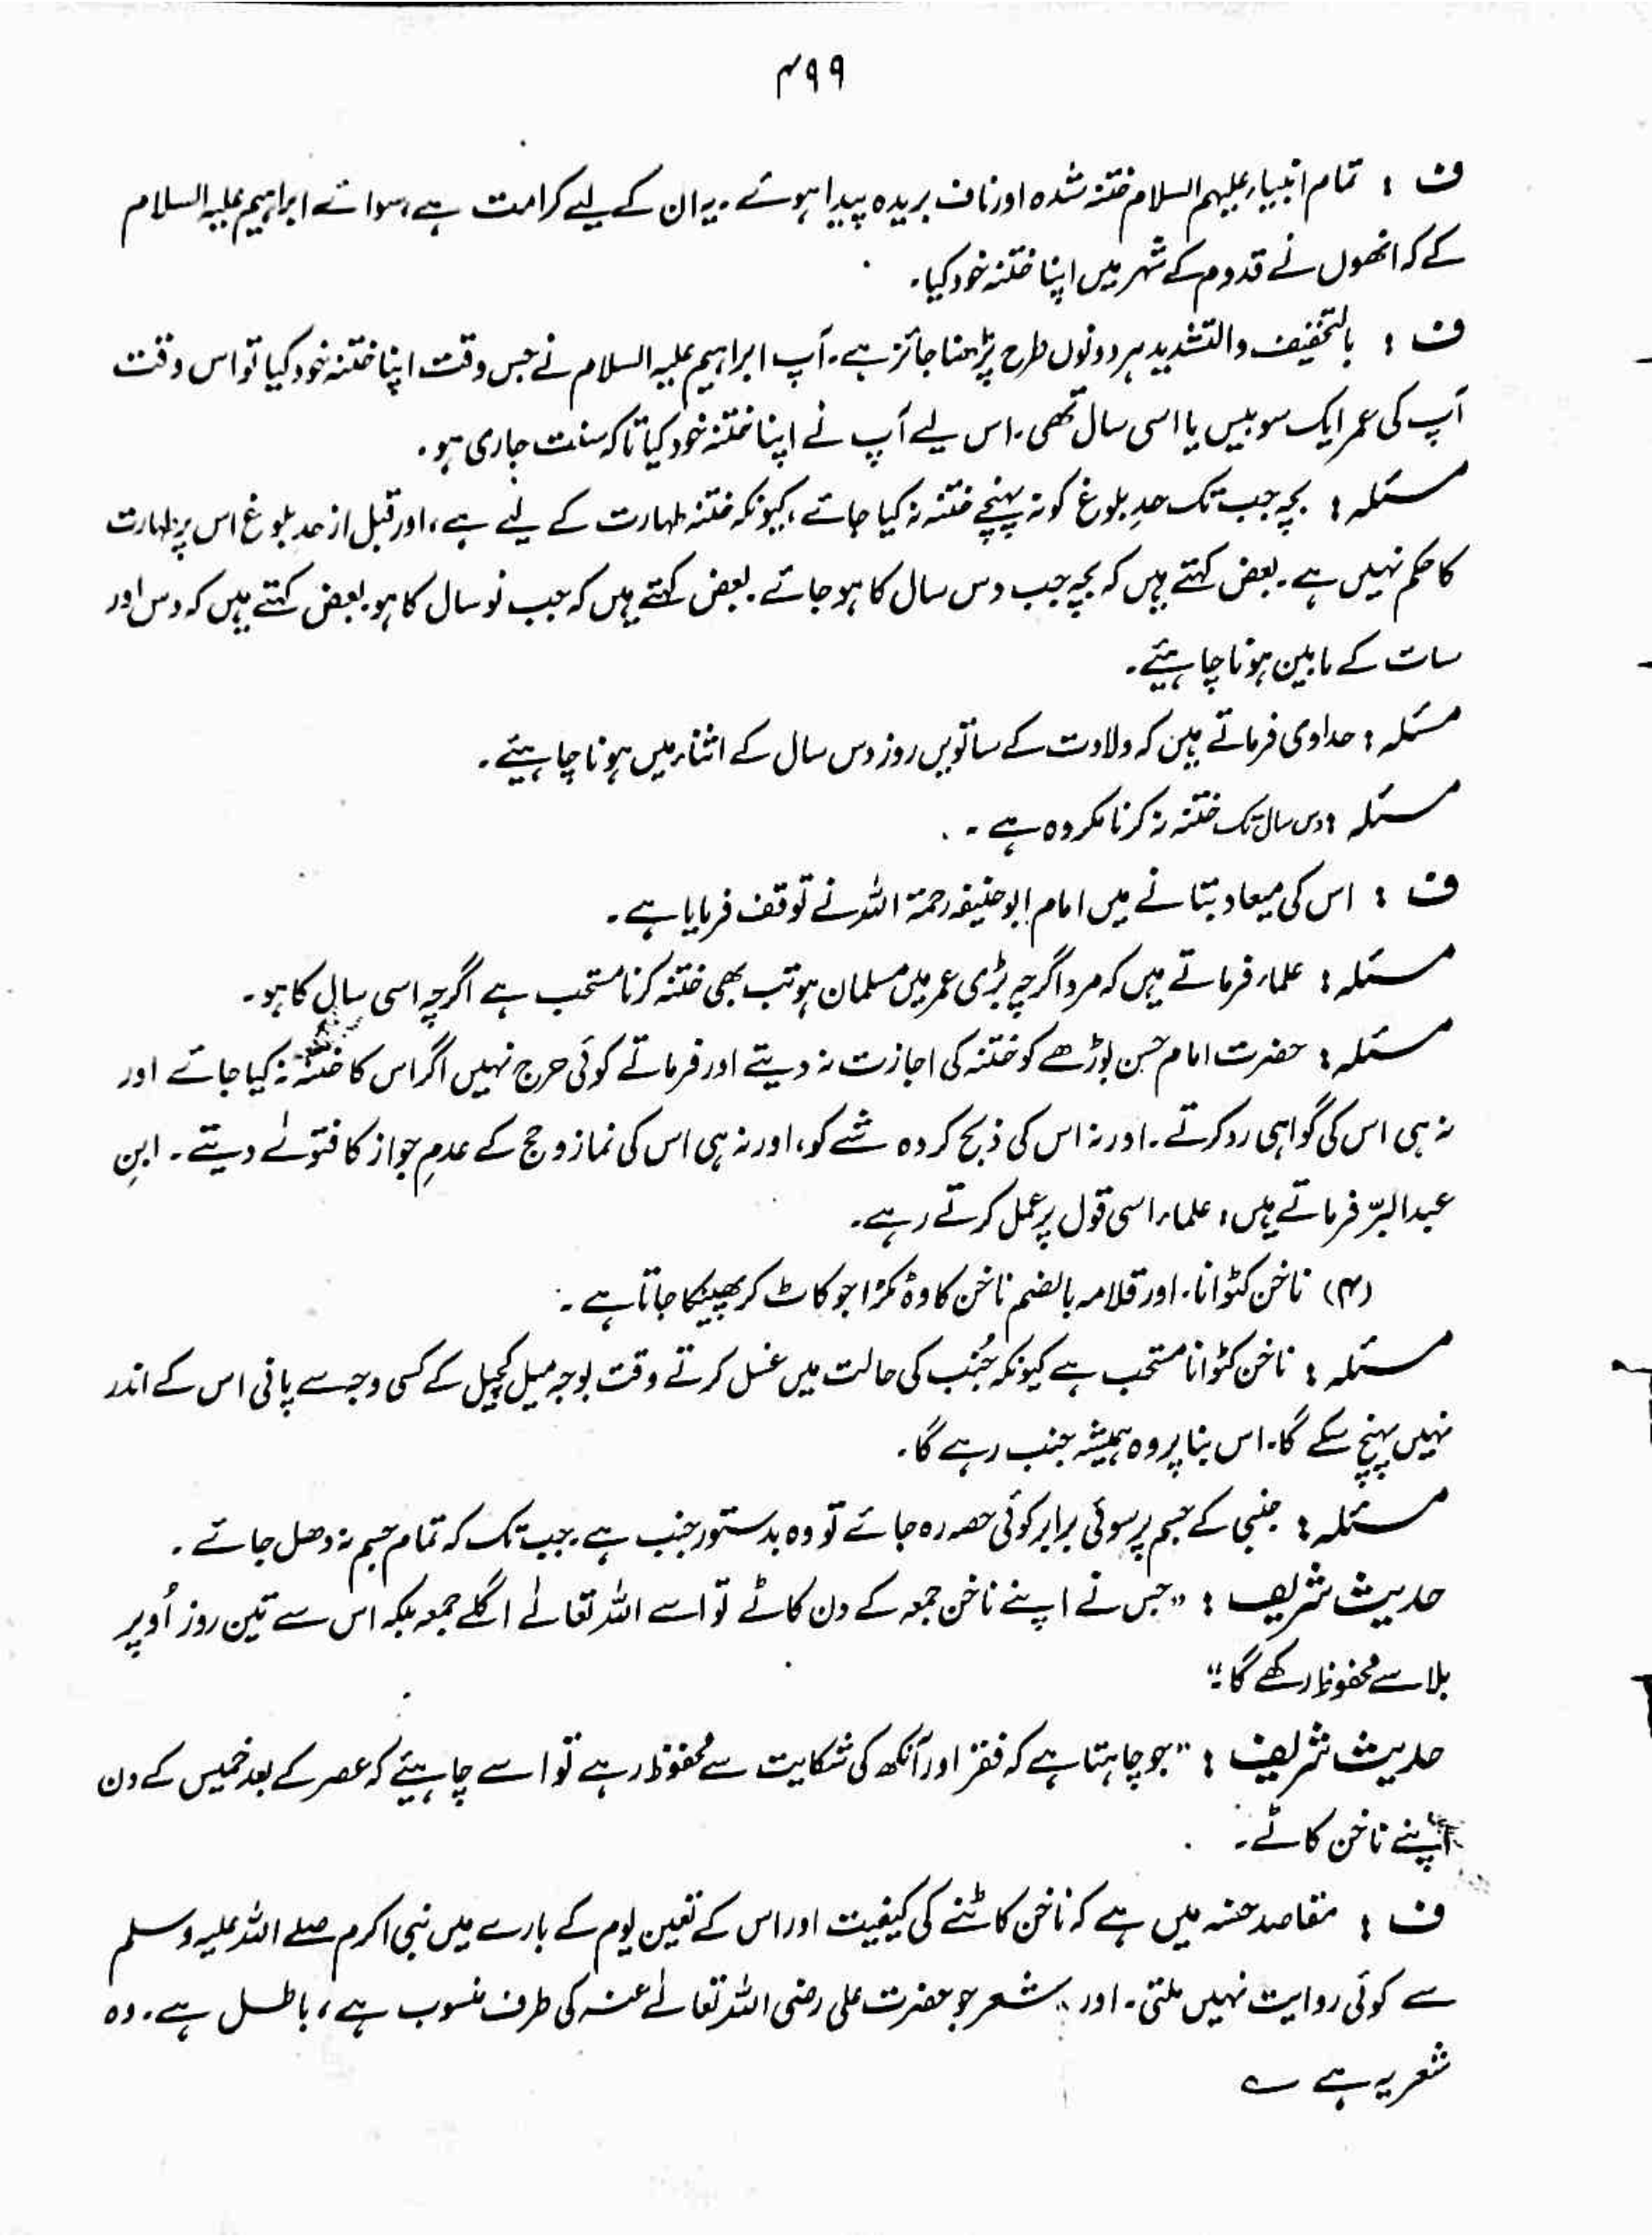 ۴۹۹
ف : تمام انبیاء علیہم السلام ختنہ شدہ اور ناف بریدہ پیدا ہوئے۔ یہ ان کے لیے کرامت ہے، سوائے ابراہیم علیہ السلام
کے کہ انھوں نے قدوم کے شہر میں اپنا ختنہ خود کیا۔
ف : بالتخفیف والتشدید ہر دونوں طرح پڑھنا جائز ہے۔ آپ ابراہیم علیہ السلام نے جس وقت اپنا ختنہ خود کیا تو اس وقت
آپ کی عمر ایک سو بیس یا اسی سال تھی۔ اس لیے آپ نے اپنا ختنہ خود کیا تاکہ سنت جاری ہو۔
مسئلہ : بچہ جب تک حدِ بلوغ کو نہ پہنچے ختنہ نہ کیا جائے، کیونکہ ختنہ طہارت کے لیے ہے، اور قبل از حد بلوغ اس پر طہارت
کا حکم نہیں ہے۔ بعض کہتے ہیں کہ بچہ جب دس سال کا ہو جائے۔ بعض کہتے ہیں کہ جب نو سال کا ہو۔ بعض کہتے ہیں کہ دس اور
سات کے مابین ہونا چاہیئے۔
مسئلہ : حدادی فرماتے ہیں کہ ولادت کے ساتویں روز دس سال کے اثناء میں ہونا چاہیئے۔
مسئلہ : دس سال تک ختنہ نہ کرنا مکروہ ہے۔
ف : اس کی میعاد بتانے میں امام ابو حنیفہ رحمۃ اللہ نے توقف فرمایا ہے۔
مسئلہ : علماء فرماتے ہیں کہ مرد اگرچہ بڑی عمر میں مسلمان ہو تب بھی ختنہ کرنا مستحب ہے اگرچہ اسی سال کا ہو۔
مسئلہ : حضرت امام حسن بوڑھے کو ختنہ کی اجازت نہ دیتے اور فرماتے کوئی حرج نہیں اگر اس کا ختنہ نہ کیا جائے اور
نہ ہی اس کی گواہی رد کرتے۔ اور نہ اس کی ذبح کردہ شے کو، اور نہ ہی اس کی نماز و حج کے عدمِ جواز کا فتوےٰ دیتے۔ ابنِ
عبدالبرّ فرماتے ہیں، علماء اسی قول پر عمل کرتے رہے۔
(۴) ناخن کٹوانا۔ اور قلامہ بالضم ناخن کا وہ ٹکڑا جو کاٹ کر پھینکا جاتا ہے۔
مسئلہ : ناخن کٹوانا مستحب ہے کیونکہ جُنُب کی حالت میں غسل کرتے وقت بوجہ میل کچیل کے کسی وجہ سے پانی اس کے اندر
نہیں پہنچ سکے گا۔ اس بنا پر وہ ہمیشہ جنب رہے گا۔
مسئلہ : جنبی کے جسم پر سوئی برابر کوئی حصہ رہ جائے تو وہ بدستور جنب ہے۔ جب تک کہ تمام جسم نہ دھل جائے۔
حدیث شریف : "جس نے اپنے ناخن جمعہ کے دن کاٹے تو اسے اللہ تعالےٰ اگلے جمعہ بلکہ اس سے تین روز اُوپر
بلا سے محفوظ رکھے گا"
حدیث شریف : "جو چاہتا ہے کہ فقر اور آنکھ کی شکایت سے محفوظ رہے تو اسے چاہیئے کہ عصر کے بعد خمیس کے دن
اپنے ناخن کاٹے۔
ف : مقاصد حسنہ میں ہے کہ ناخن کاٹنے کی کیفیت اور اس کے تعین یوم کے بارے میں نبی اکرم صلے اللہ علیہ وسلم
سے کوئی روایت نہیں ملتی۔ اور شعر جو حضرت علی رضی اللہ تعالےٰ عنہ کی طرف منسوب ہے، باطل ہے۔ وہ
شعر یہ ہے ؎